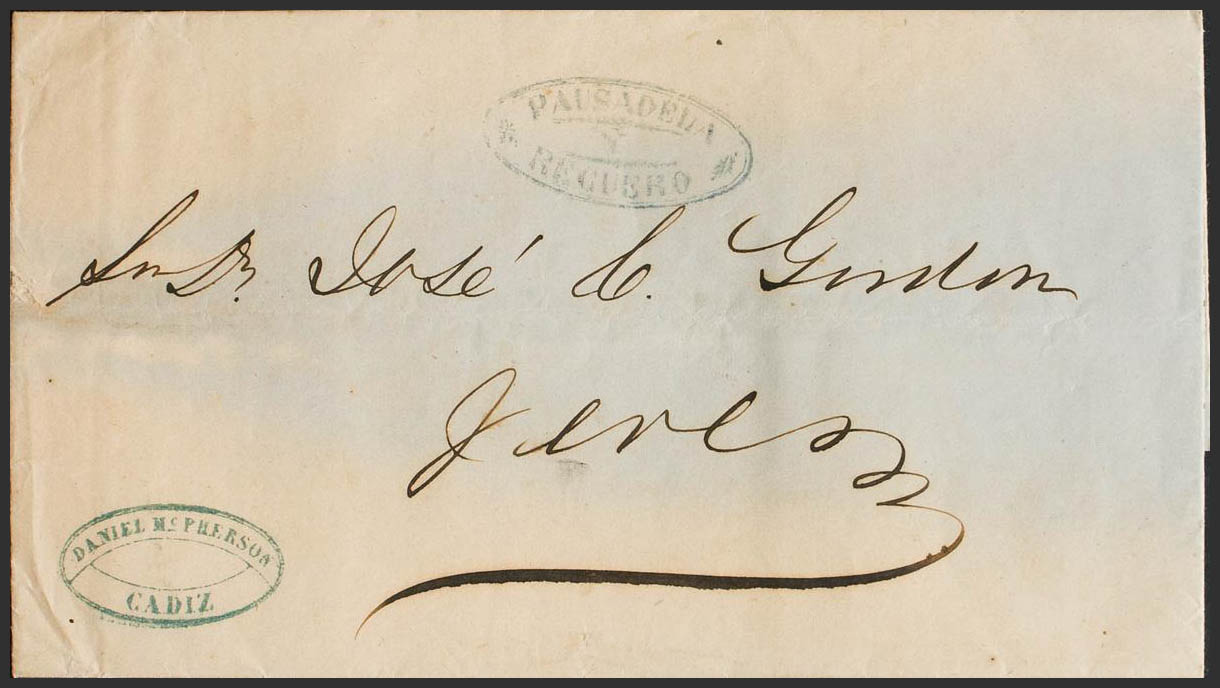 PAUSADELA
Y
REGUERO
Sr. Dn. José C. Gordon
Jerez
DANIEL McPHERSON
CADIZ